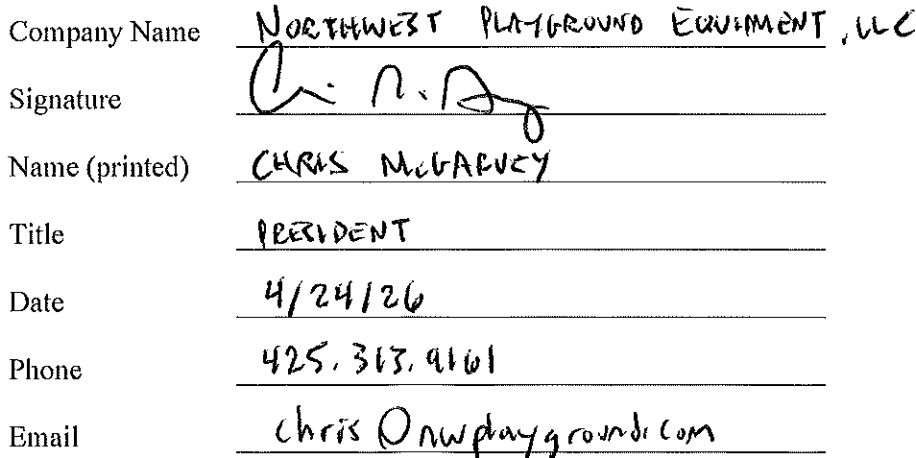 Company Name NORTHWEST PLAYGROUND EQUIPMENT, LLC
Signature
Name (printed) CHRIS McGARVEY
Title PRESIDENT
Date 4/24/26
Phone 425.313.9161
Email chris@nwplayground.com